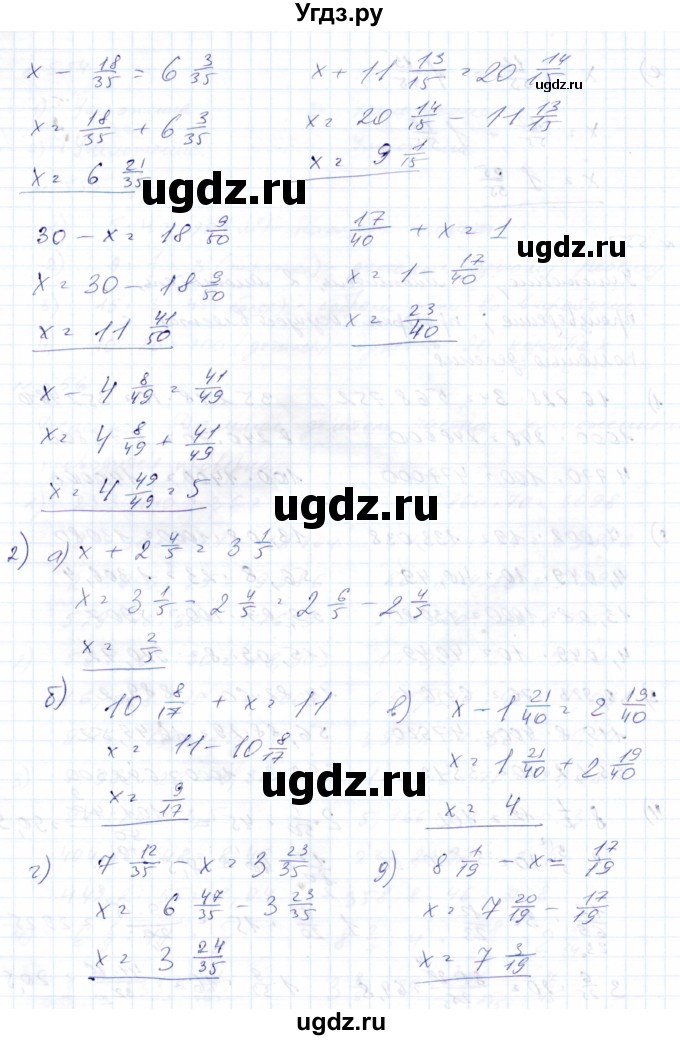 Угдз.ру
x - 18/35 = 6 3/35
x = 18/35 + 6 3/35
x = 6 21/35
x + 11 13/15 = 20 14/15
x = 20 14/15 - 11 13/15
x = 9 1/15
ugdz.ru
ugdz.ru
30 - x = 18 9/50
x = 30 - 18 9/50
x = 11 41/50
17/40 + x = 1
x = 1 - 17/40
x = 23/40
ugdz.ru
ugdz.ru
x - 4 8/49 = 41/49
x = 4 8/49 + 41/49
x = 4 49/49 = 5
ugdz.ru
2) а) x + 2 4/5 = 3 1/5
x = 3 1/5 - 2 4/5 = 2 6/5 - 2 4/5
x = 2/5
ugdz.ru
б) 10 8/17 + x = 11
x = 11 - 10 8/17
x = 9/17
в) x - 1 21/40 = 2 19/40
x = 1 21/40 + 2 19/40
x = 4
ugdz.ru
ugdz.ru
г) 7 12/35 - x = 3 23/35
x = 6 47/35 - 3 23/35
x = 3 24/35
д) 8 1/19 - x = 17/19
x = 7 20/19 - 17/19
x = 7 3/19
ugdz.ru
ugdz.ru
ugdz.ru